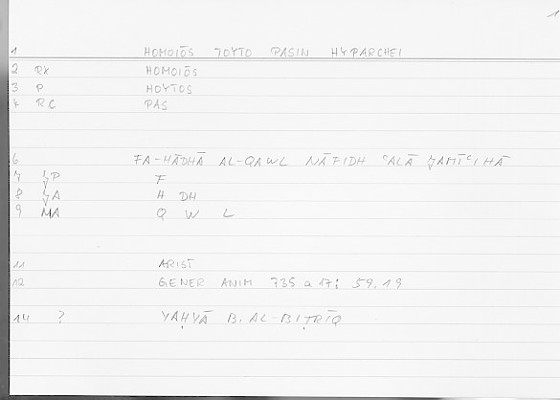 1 HOMOIŌS TOYTO PASIN HYPARCHEI
2 RX HOMOIŌS
3 P HOYTOS
4 RC PAS
6 FA-HĀDHĀ AL-QAWL NĀFIDH ʿALĀ ǦAMĪʿIHĀ
7 P F
8 A H DH
9 MA Q W L
11 ARIST
12 GENER ANIM 735 a 17; 59.19
14 ? YAḤYĀ B. AL-BIṬRĪQ